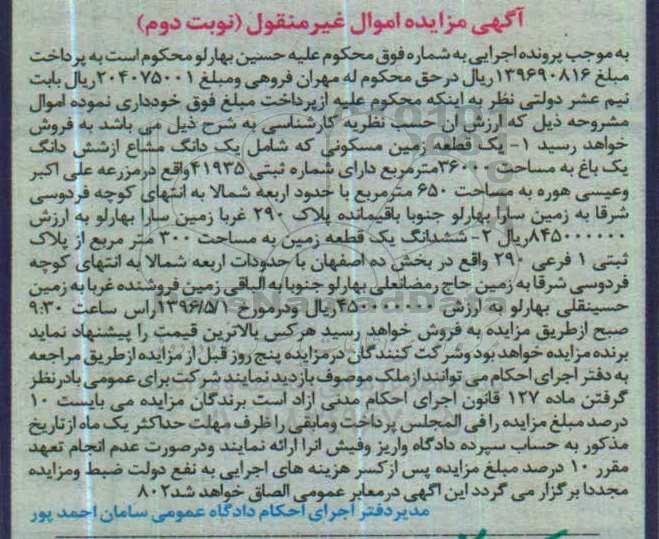 آگهی مزایده اموال غیرمنقول (نوبت دوم)
به موجب پرونده اجرایی به شماره فوق محکوم علیه حسین بهارلو محکوم است به پرداخت
مبلغ ۱۳۹۶۹۰۸۱۶ریال درحق محکوم له مهران فروهی ومبلغ ۲۰۴۰۷۵۰۰۱ریال بابت
نیم عشر دولتی نظر به اینکه محکوم علیه ازپرداخت مبلغ فوق خودداری نموده اموال
مشروحه ذیل که ارزش آن حسب نظریه کارشناسی به شرح ذیل می باشد به فروش
خواهد رسید ۱- یک قطعه زمین مسکونی که شامل یک دانگ مشاع ازشش دانگ
یک باغ به مساحت ۳۶۰۰مترمربع دارای شماره ثبتی ۴۱۹۳۵واقع درمزرعه علی اکبر
وعیسی هوره به مساحت ۶۵۰ مترمربع با حدود اربعه شمالا به انتهای کوچه فردوسی
شرقا به زمین سارا بهارلو جنوبا باقیمانده پلاک ۲۹۰ غربا زمین سارا بهارلو به ارزش
۸۴۵۰۰۰۰۰۰ریال ۲- ششدانگ یک قطعه زمین به مساحت ۳۰۰ متر مربع از پلاک
ثبتی ۱ فرعی ۲۹۰ واقع در بخش ده اصفهان با حدودات اربعه شمالا به انتهای کوچه
فردوسی شرقا به زمین حاج رمضانعلی بهارلو جنوبا به الباقی زمین فروشنده غربا به زمین
حسینقلی بهارلو به ارزش ریال ودرمورخ ۱۳۹۶/۵/۱راس ساعت ۹:۳۰
صبح ازطریق مزایده به فروش خواهد رسید هرکس بالاترین قیمت را پیشنهاد نماید
برنده مزایده خواهد بود وشرکت کنندگان درمزایده پنج روز قبل از مزایده ازطریق مراجعه
به دفتر اجرای احکام می توانند ازملک موصوف بازدید نمایند شرکت برای عمومی بادرنظر
گرفتن ماده ۱۲۷ قانون اجرای احکام مدنی ازاد است برندگان مزایده می بایست ۱۰
درصد مبلغ مزایده را فی المجلس پرداخت ومابقی را ظرف مهلت حداکثر یک ماه ازتاریخ
مذکور به حساب سپرده دادگاه واریز وفیش انرا ارائه نمایند ودرصورت عدم انجام تعهد
مقرر ۱۰ درصد مبلغ مزایده پس ازکسر هزینه های اجرایی به نفع دولت ضبط ومزایده
مجددا برگزار می گردد این اگهی درمعابر عمومی الصاق خواهد شد۸۰۲
مدیردفتر اجرای احکام دادگاه عمومی سامان احمد پور